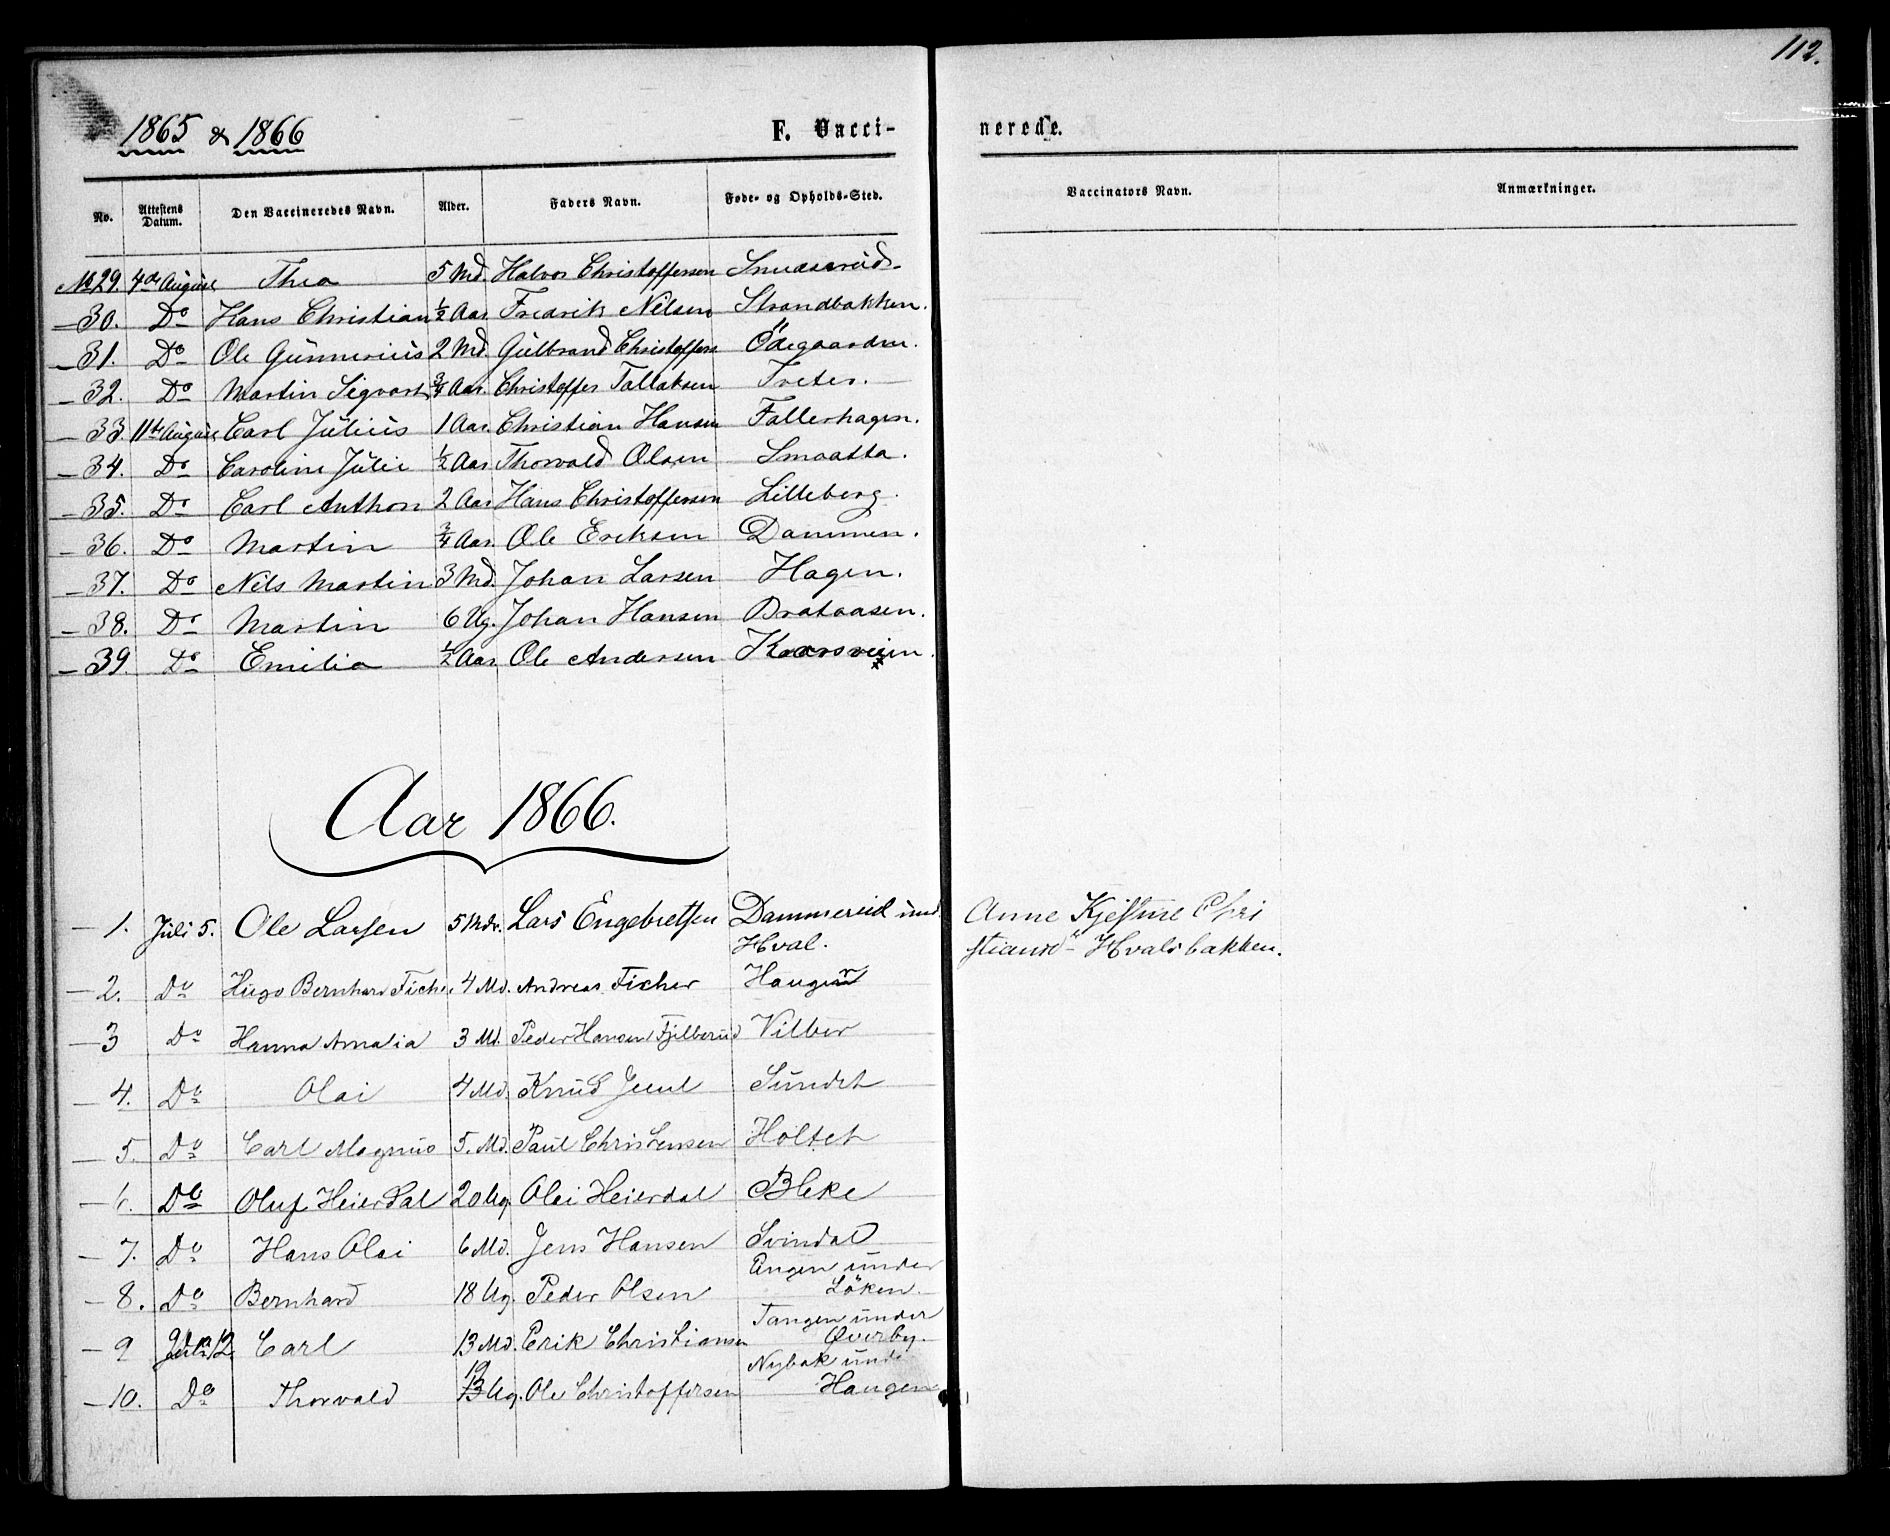 112.
1865 & 1866 F. Vacci- nerede.
No. Attestens Datum. Den Vaccineredes Navn. Alder. Faders Navn. Føde- og Opholds-Sted. Vaccinators Navn. Anmærkninger.
No 29. 4de August Thea 5 Md. Halvor Christoffersen
— 30. Do Hans Christian ½ Aar Fredrik Nilsen Strandbakken.
— 31. Do Ole Gunnerius 2 Md. Gulbrand Christoffers Ödegaarden.
— 32. Do Martin Sigvart ¾ Aar. Christoffer Tallaksen Treter.
— 33. 11te August Carl Julius 1 Aar. Christian Hansen Fallerhagen.
— 34. Do Caroline Julie ½ Aar Thorvald Olsen Smaatta.
— 35. Do Carl Anthon 2 Aar Hans Christoffersen Lilleberg.
— 36. Do Martin ¾ Aar. Ole Eriksen Dammen.
— 37. Do Nils Martin 3 Md. Johan Larsen Hagen.
— 38. Do Martin 6 Ug. Johan Hansen Brataasen.
— 39. Do Emilia ½ Aar Ole Andersen Korsveien.
Aar 1866.
— 1. Juli 5. Ole Larsen 5 Mdr. Lars Engebretsen Dammereid und. Anne Kjestine Chri
Hval. stiansd - Hvalsbakken.
— 2. Do Hugo Bernhard Ficher 4 Md. Andreas Ficher Haugen
— 3 Do Hanna Amalia 3 Md. Peder Hansen Fjelberud Vilber
— 4. Do Olai 4 Md. Knud Juul Sundet
— 5. Do Carl Magnus 5. Md. Paul Christensen Holtet
— 6. Do Oluf Heierdal 20 Ug. Olai Heierdal Bleke
— 7. Do Hans Olai 6 Md. Jens Hansen Svindal
Engen under
— 8. Do Bernhard 18 Ug. Peder Olsen Löken.
Tangen under
— 9 Juli 12. Carl 13 Md. Erik Christiansen Øverby.
Nybak unde
— 10. Do Thorvald Ug. Ole Christoffersen Haugen